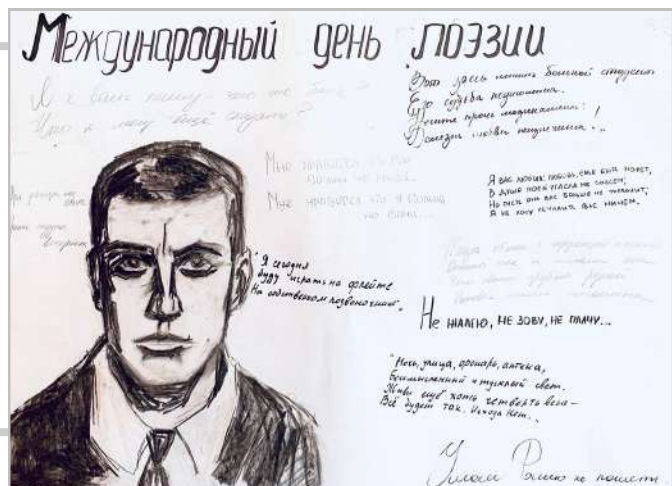 Международный день поэзии
Я к вам пишу – чего же боле?
Что я могу ещё сказать?
"Вот здесь лежит больной студент
Его судьба неумолима.
Несите прочь медикаменты!
Болезнь любви неизлечима..."
Мне нравится, что вы
больны не мной...
Мне нравится, что я больна
не вами...
Я вас любил: любовь, ещё быть может,
В душе моей угасла не совсем;
Но пусть она вас больше не тревожит;
Я не хочу печалить вас ничем.
"Я сегодня
буду играть на флейте
На собственном позвоночнике".
Не жалею, не зову, не плачу...
"Ночь, улица, фонарь, аптека,
Бессмысленный и тусклый свет.
Живи ещё хоть четверть века –
Всё будет так. Исхода нет."
Умом Россию не понять